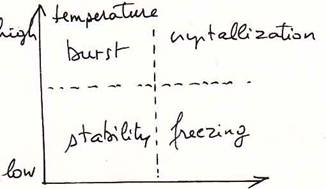 temperature
high
burst
crystallization
stability
freezing
low